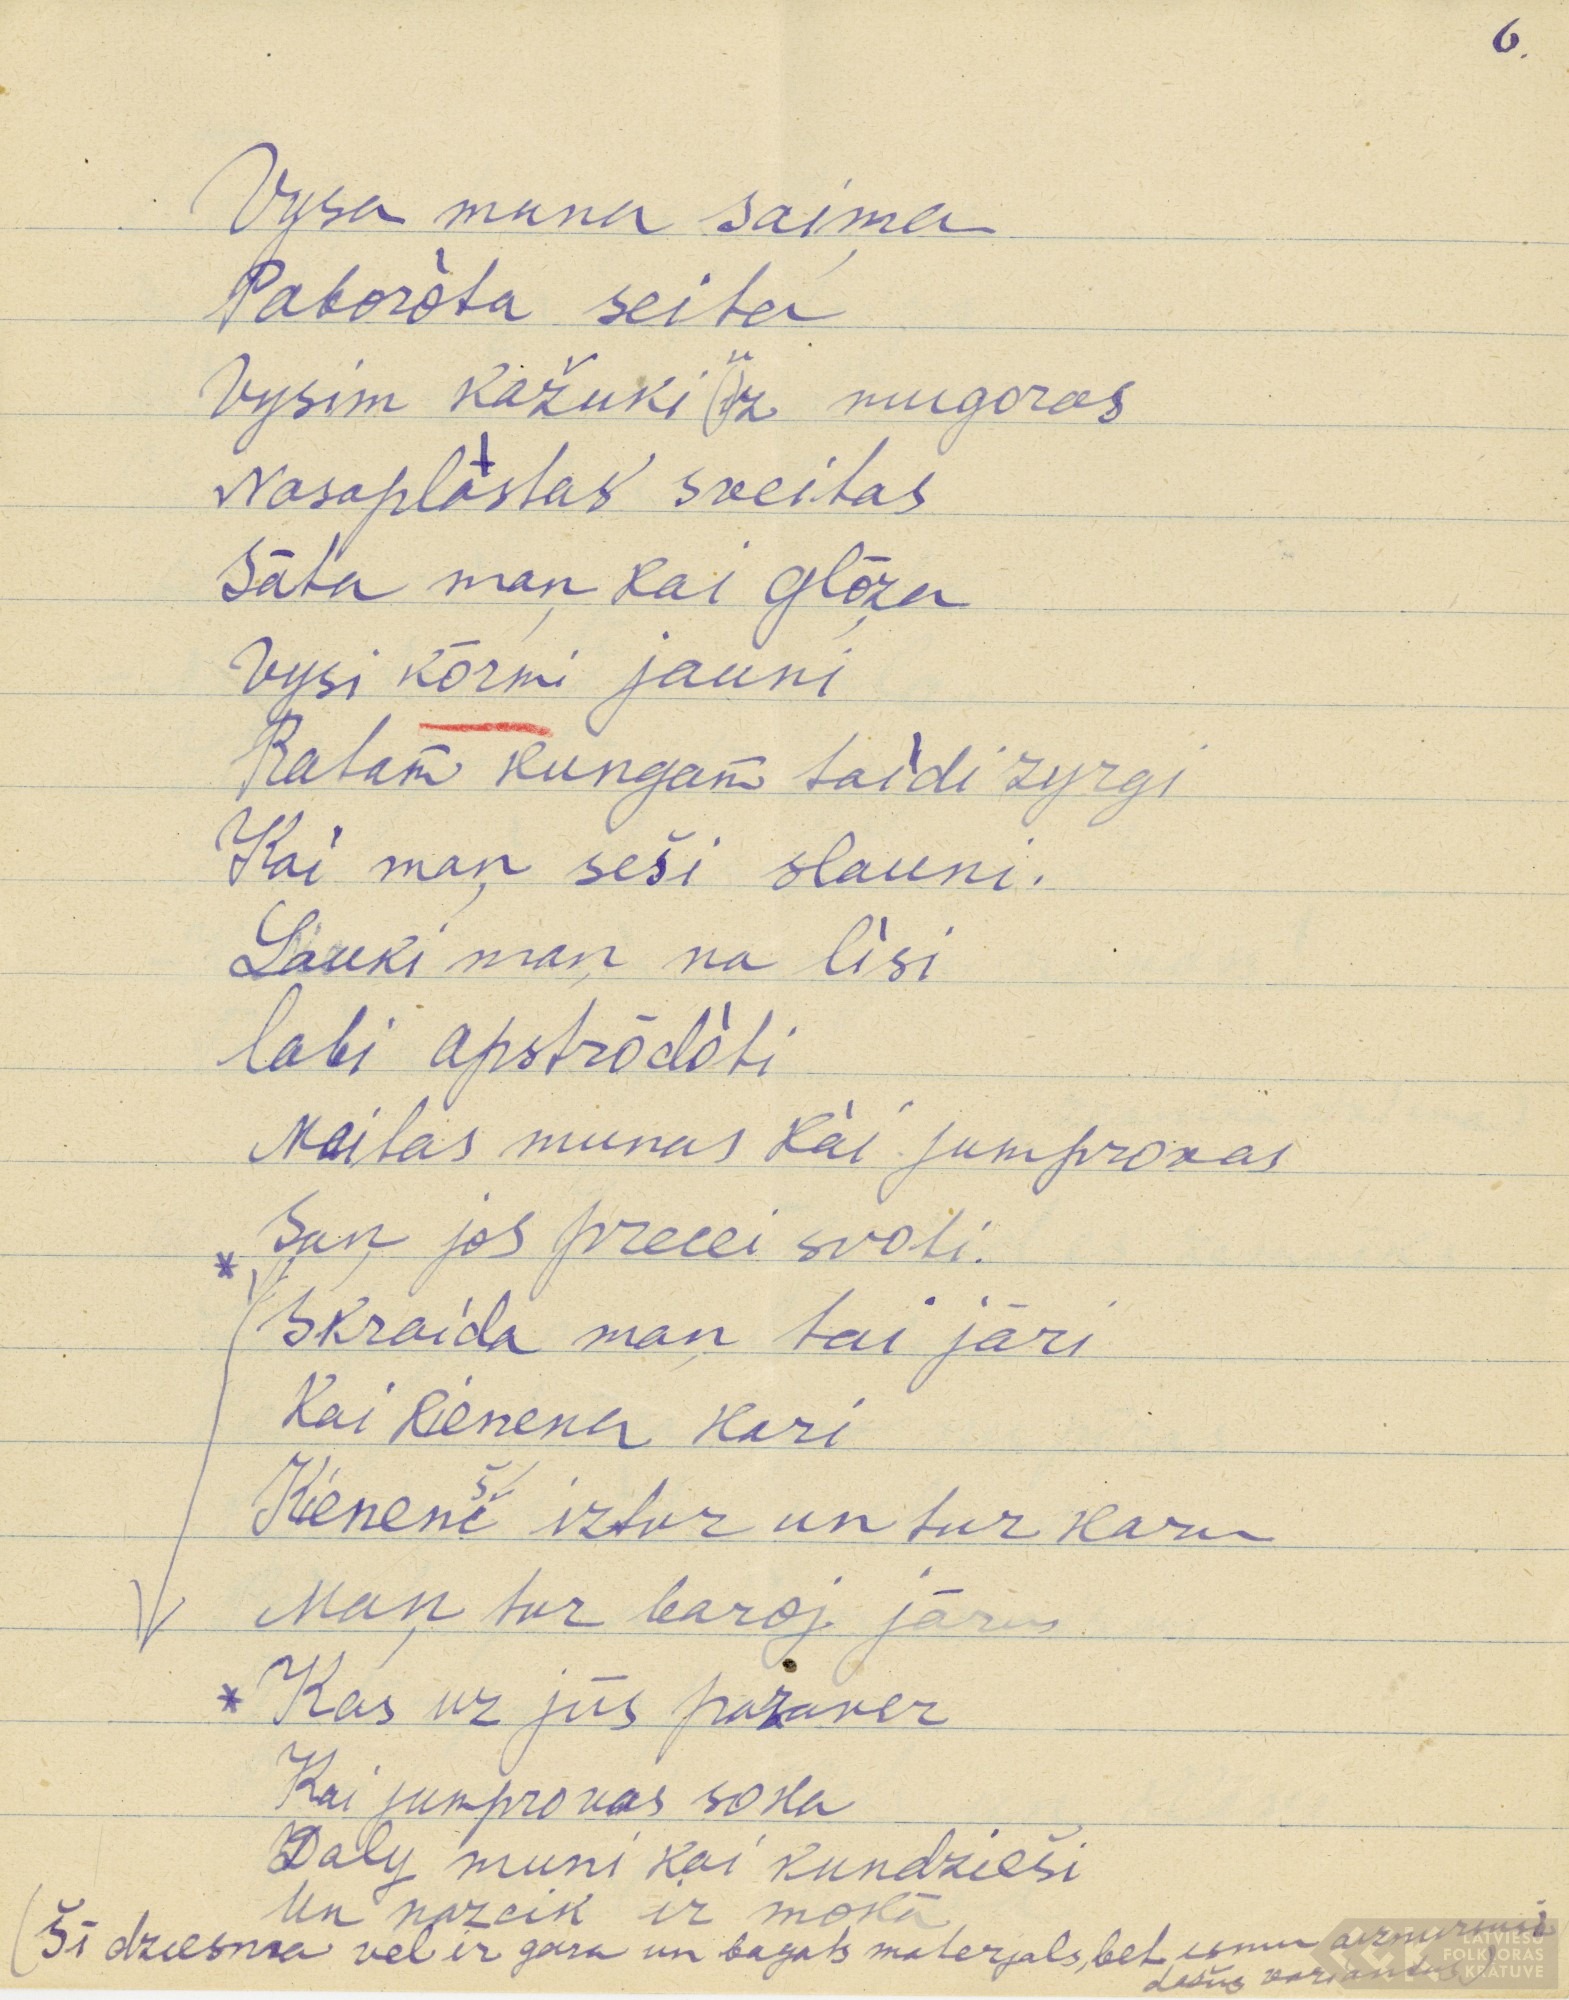 6.
Vysa muna saima
Paboròta seita
Vysim kažuki iz mugoras
Nasaplàstas sveitas
Sāta maņ kai glōza
Vysi kōrmi jauni
Ratam̄ kungam̄ taìdi zyrgi
Kai maņ seši slauni.
Lauki maņ na lìsi
labi apstrōdòti
Meitas munas kài jumprovas
Suņ jos precei svoti.
* Skraida maņ tai jāri
Kai kēneņa kari
Kēneņš iztur un tur karu
Maņ tur baroj jārus
* Kas uz jūs pazaver
Kai jumprovas soka
Daly muni kai kundzieši
Un nazcik ir mokā
(Šī dziesma vel ir gara un bagats materjals, bet esmu aizmirsusi
dažus variantus)
LATVIEŠU
FOLKLORAS
KRĀTUVE